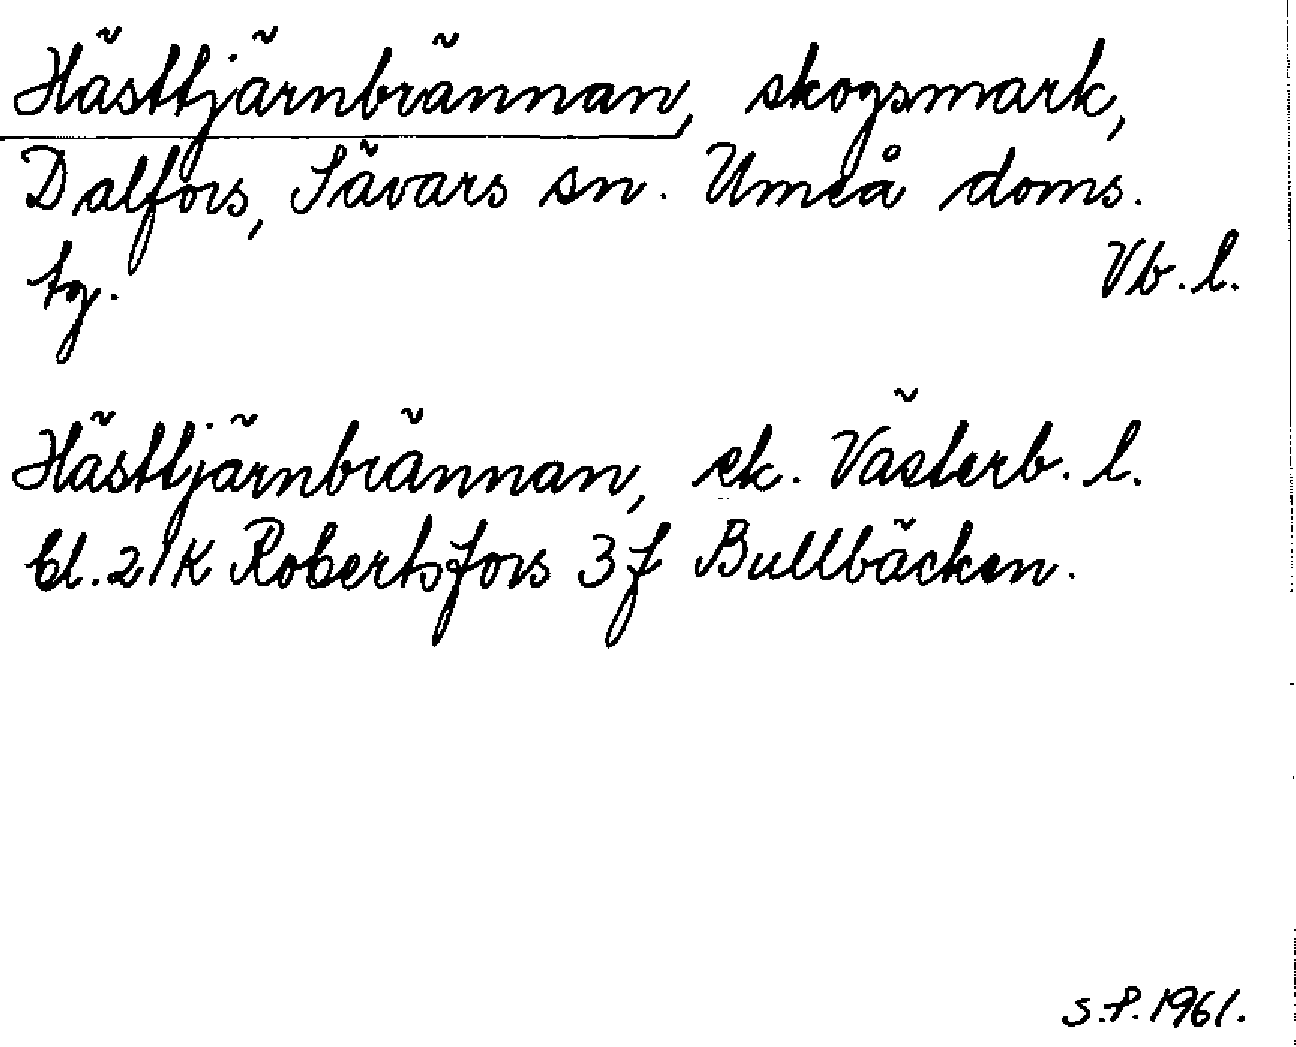 Hästtjärnbrännan, skogsmark,
Dalfors, Sävars sn. Umeå doms.
tg. Vb. l.
Hästtjärnbrännan, sk. Västerb. l.
bl. 21K Robertsfors 3f Bullbäcken.
S.P. 1961.